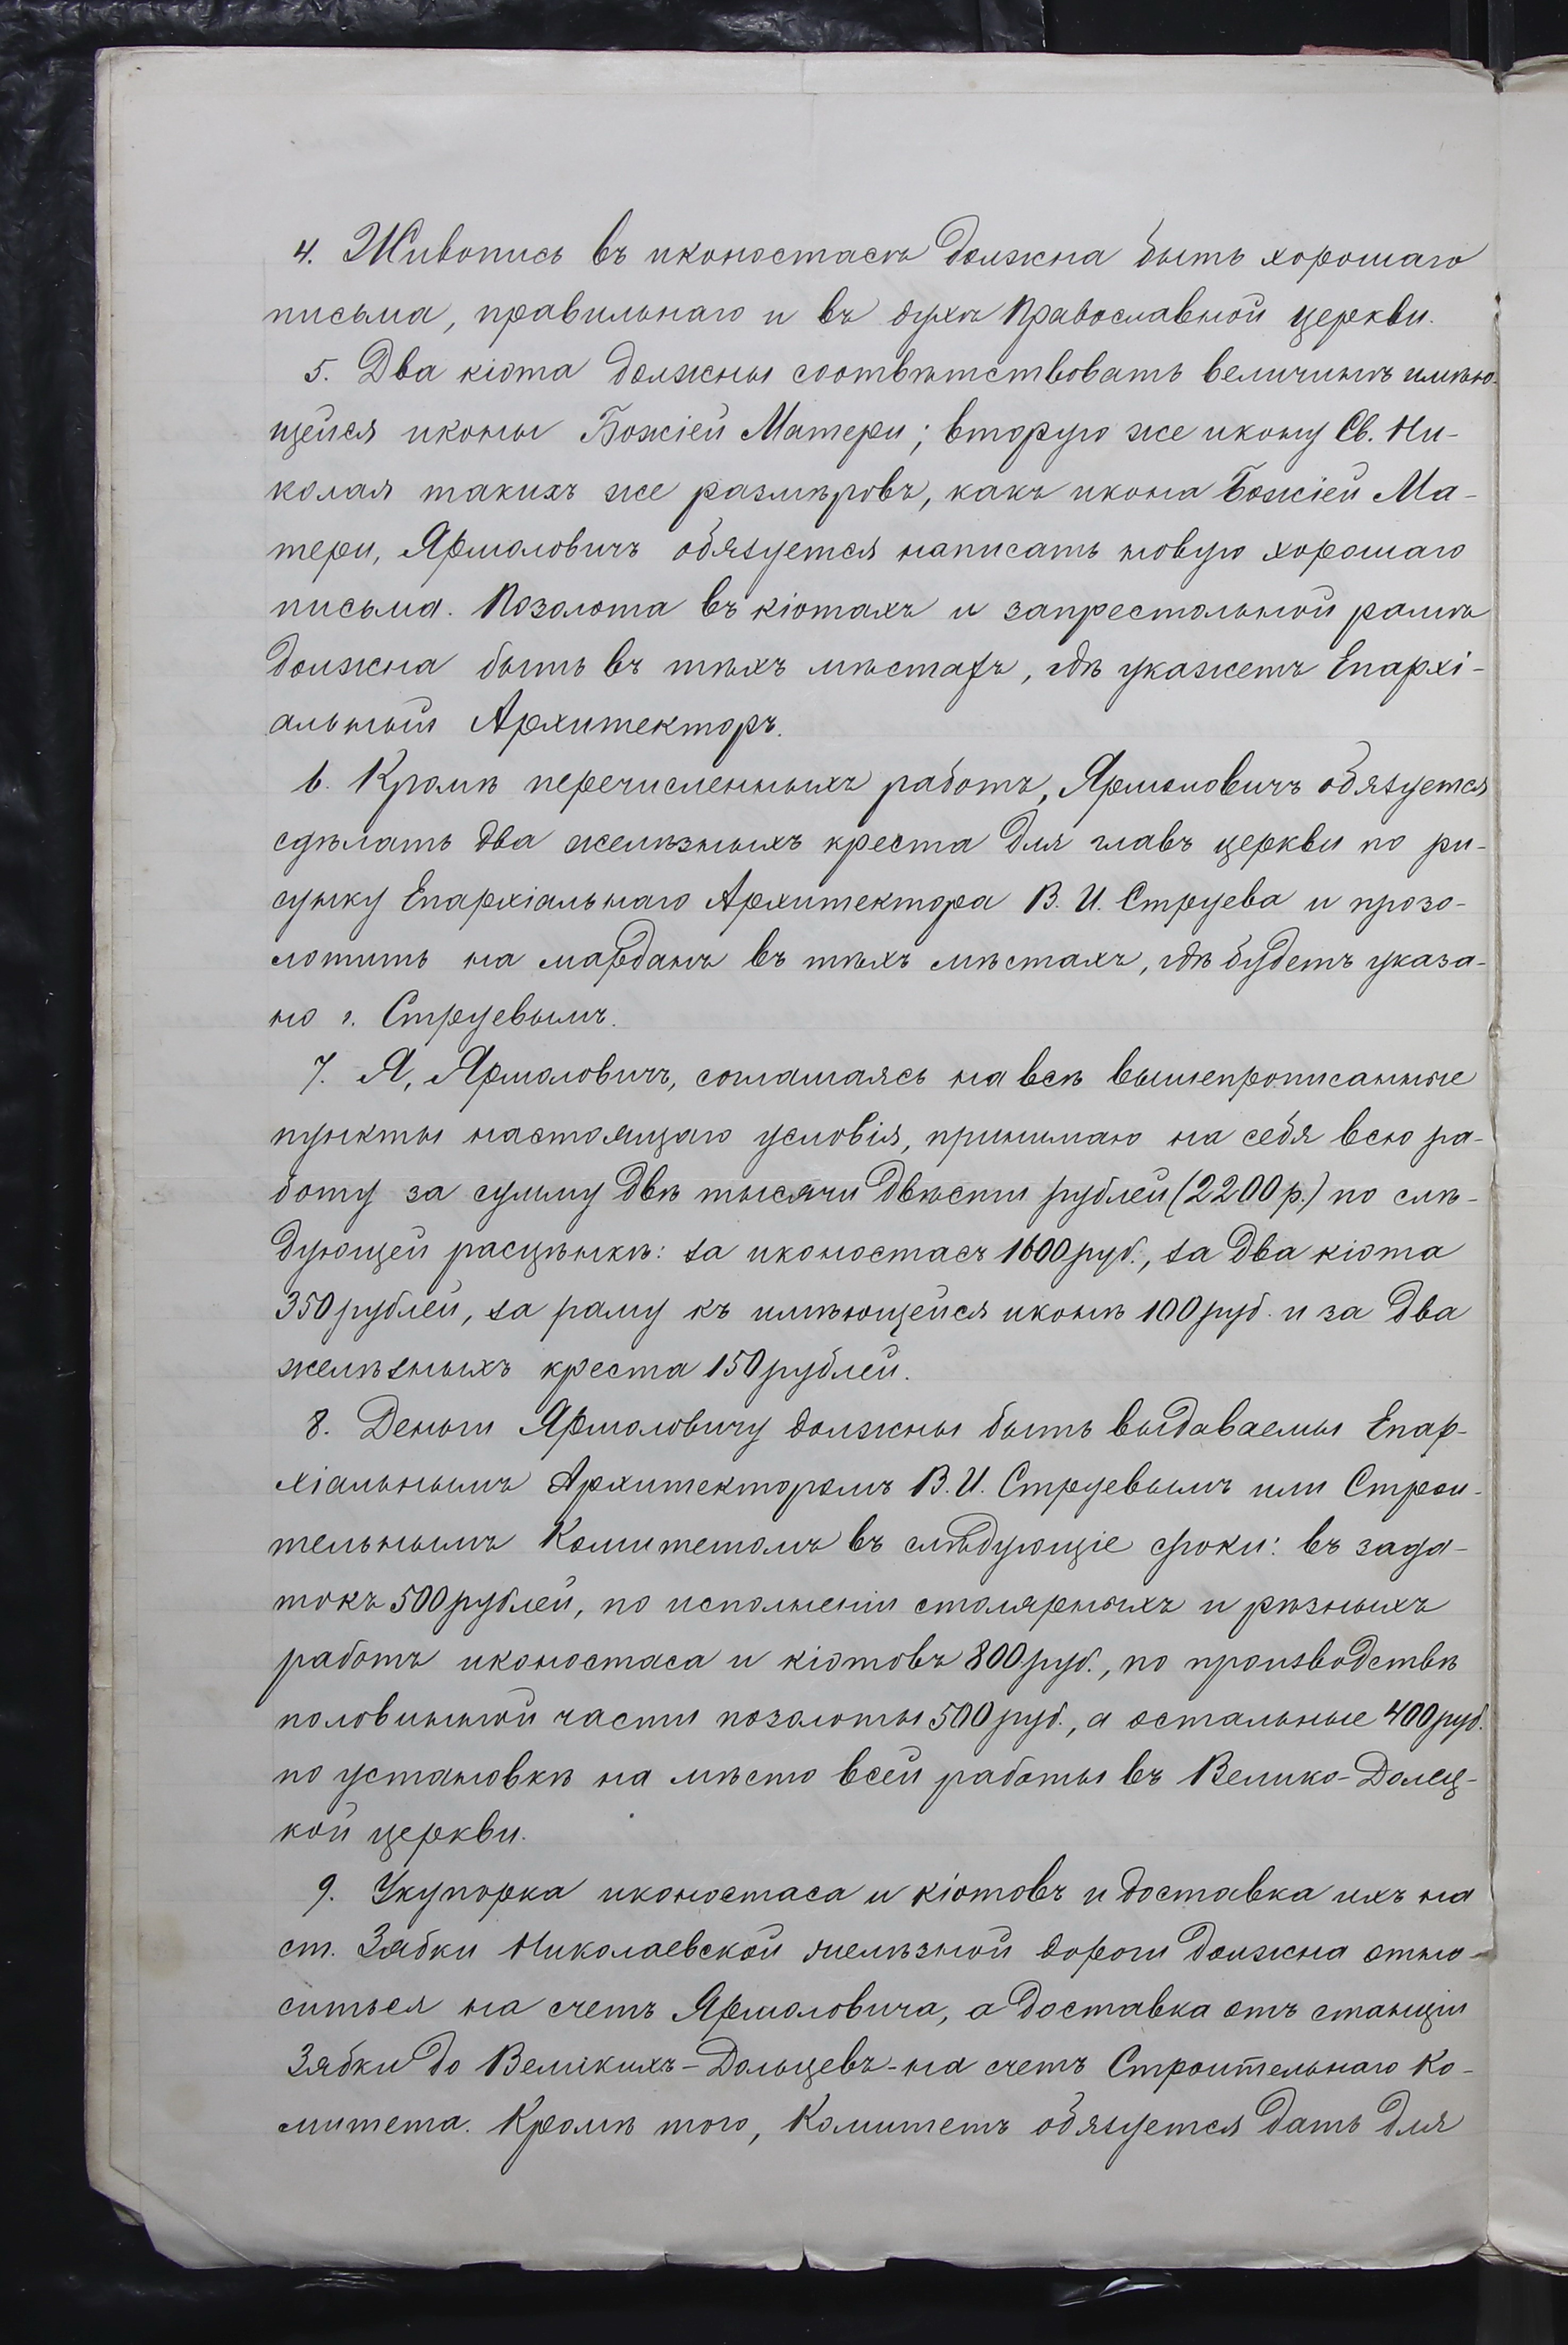 4. Живопись въ иконостасѣ должна быть хорошаго
письма, правильнаго и въ духѣ Православной церкви.
5. Два кіота должны соотвѣтствовать величинѣ имѣю-
щейся иконы Божіей Матери; вторую же икону Св. Ни-
колая такихъ же размѣровъ, какъ икона Божіей Ма-
тери, Ярмоловичъ обязуется написать новую хорошаго
письма. Позолота въ кіотахъ и запрестольной рамѣ
должна быть въ тѣхъ мѣстахъ, гдѣ укажетъ Епархі-
альный Архитекторъ.
6. Кромѣ перечисленныхъ работъ, Ярмоловичъ обязуется
сдѣлать два желѣзныхъ креста для главъ церкви по ри-
сунку Епархіальнаго Архитектора В. И. Струева и прозо-
лотить на марданъ въ тѣхъ мѣстахъ, гдѣ будетъ указа-
но г. Струевымъ.
7. Я, Ярмоловичъ, соглашаясь на всѣ вышепрописанные
пункты настоящаго условія, принимаю на себя всю ра-
боту за сумму двѣ тысячи двѣсти рублей (2200 р.) по слѣ-
дующей расцѣнкѣ: за иконостасъ 1600 руб., за два кіота
350 рублей, за раму къ имѣющейся иконѣ 100 руб. и за два
желѣзныхъ креста 150 рублей.
8. Деньги Ярмоловичу должны быть выдаваемы Епар-
хіальнымъ Архитекторомъ В. И. Струевымъ или Строи-
тельнымъ Комитетомъ въ слѣдующіе сроки: въ зада-
токъ 500 рублей, по исполненіи столярныхъ и рѣзныхъ
работъ иконостаса и кіотовъ 800 руб., по производствѣ
половинной части позолоты 500 руб., а остальные 400 руб.
по установкѣ на мѣсто всей работы въ Велико-Долец-
кой церкви.
9. Укупорка иконостаса и кіотовъ и доставка ихъ на
ст. Зябки Николаевской желѣзной дороги должна отно-
ситься на счетъ Ярмоловича, а доставка отъ станціи
Зябки до Великихъ-Дольцевъ - на счетъ Строительнаго Ко-
митета. Кромѣ того, Комитетъ обязуется дать для